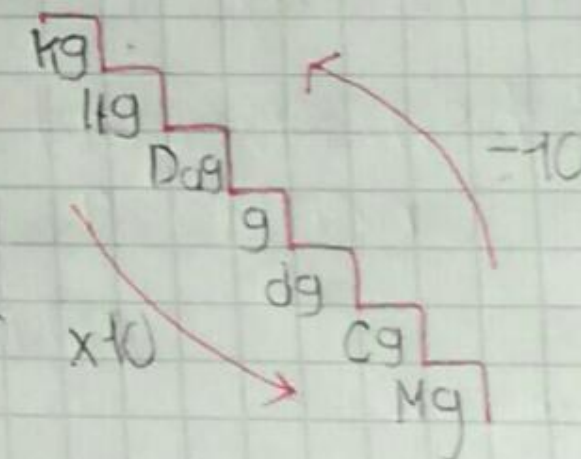 Kg
Hg
Dag
g
dg
Cg
Mg
x10
-10